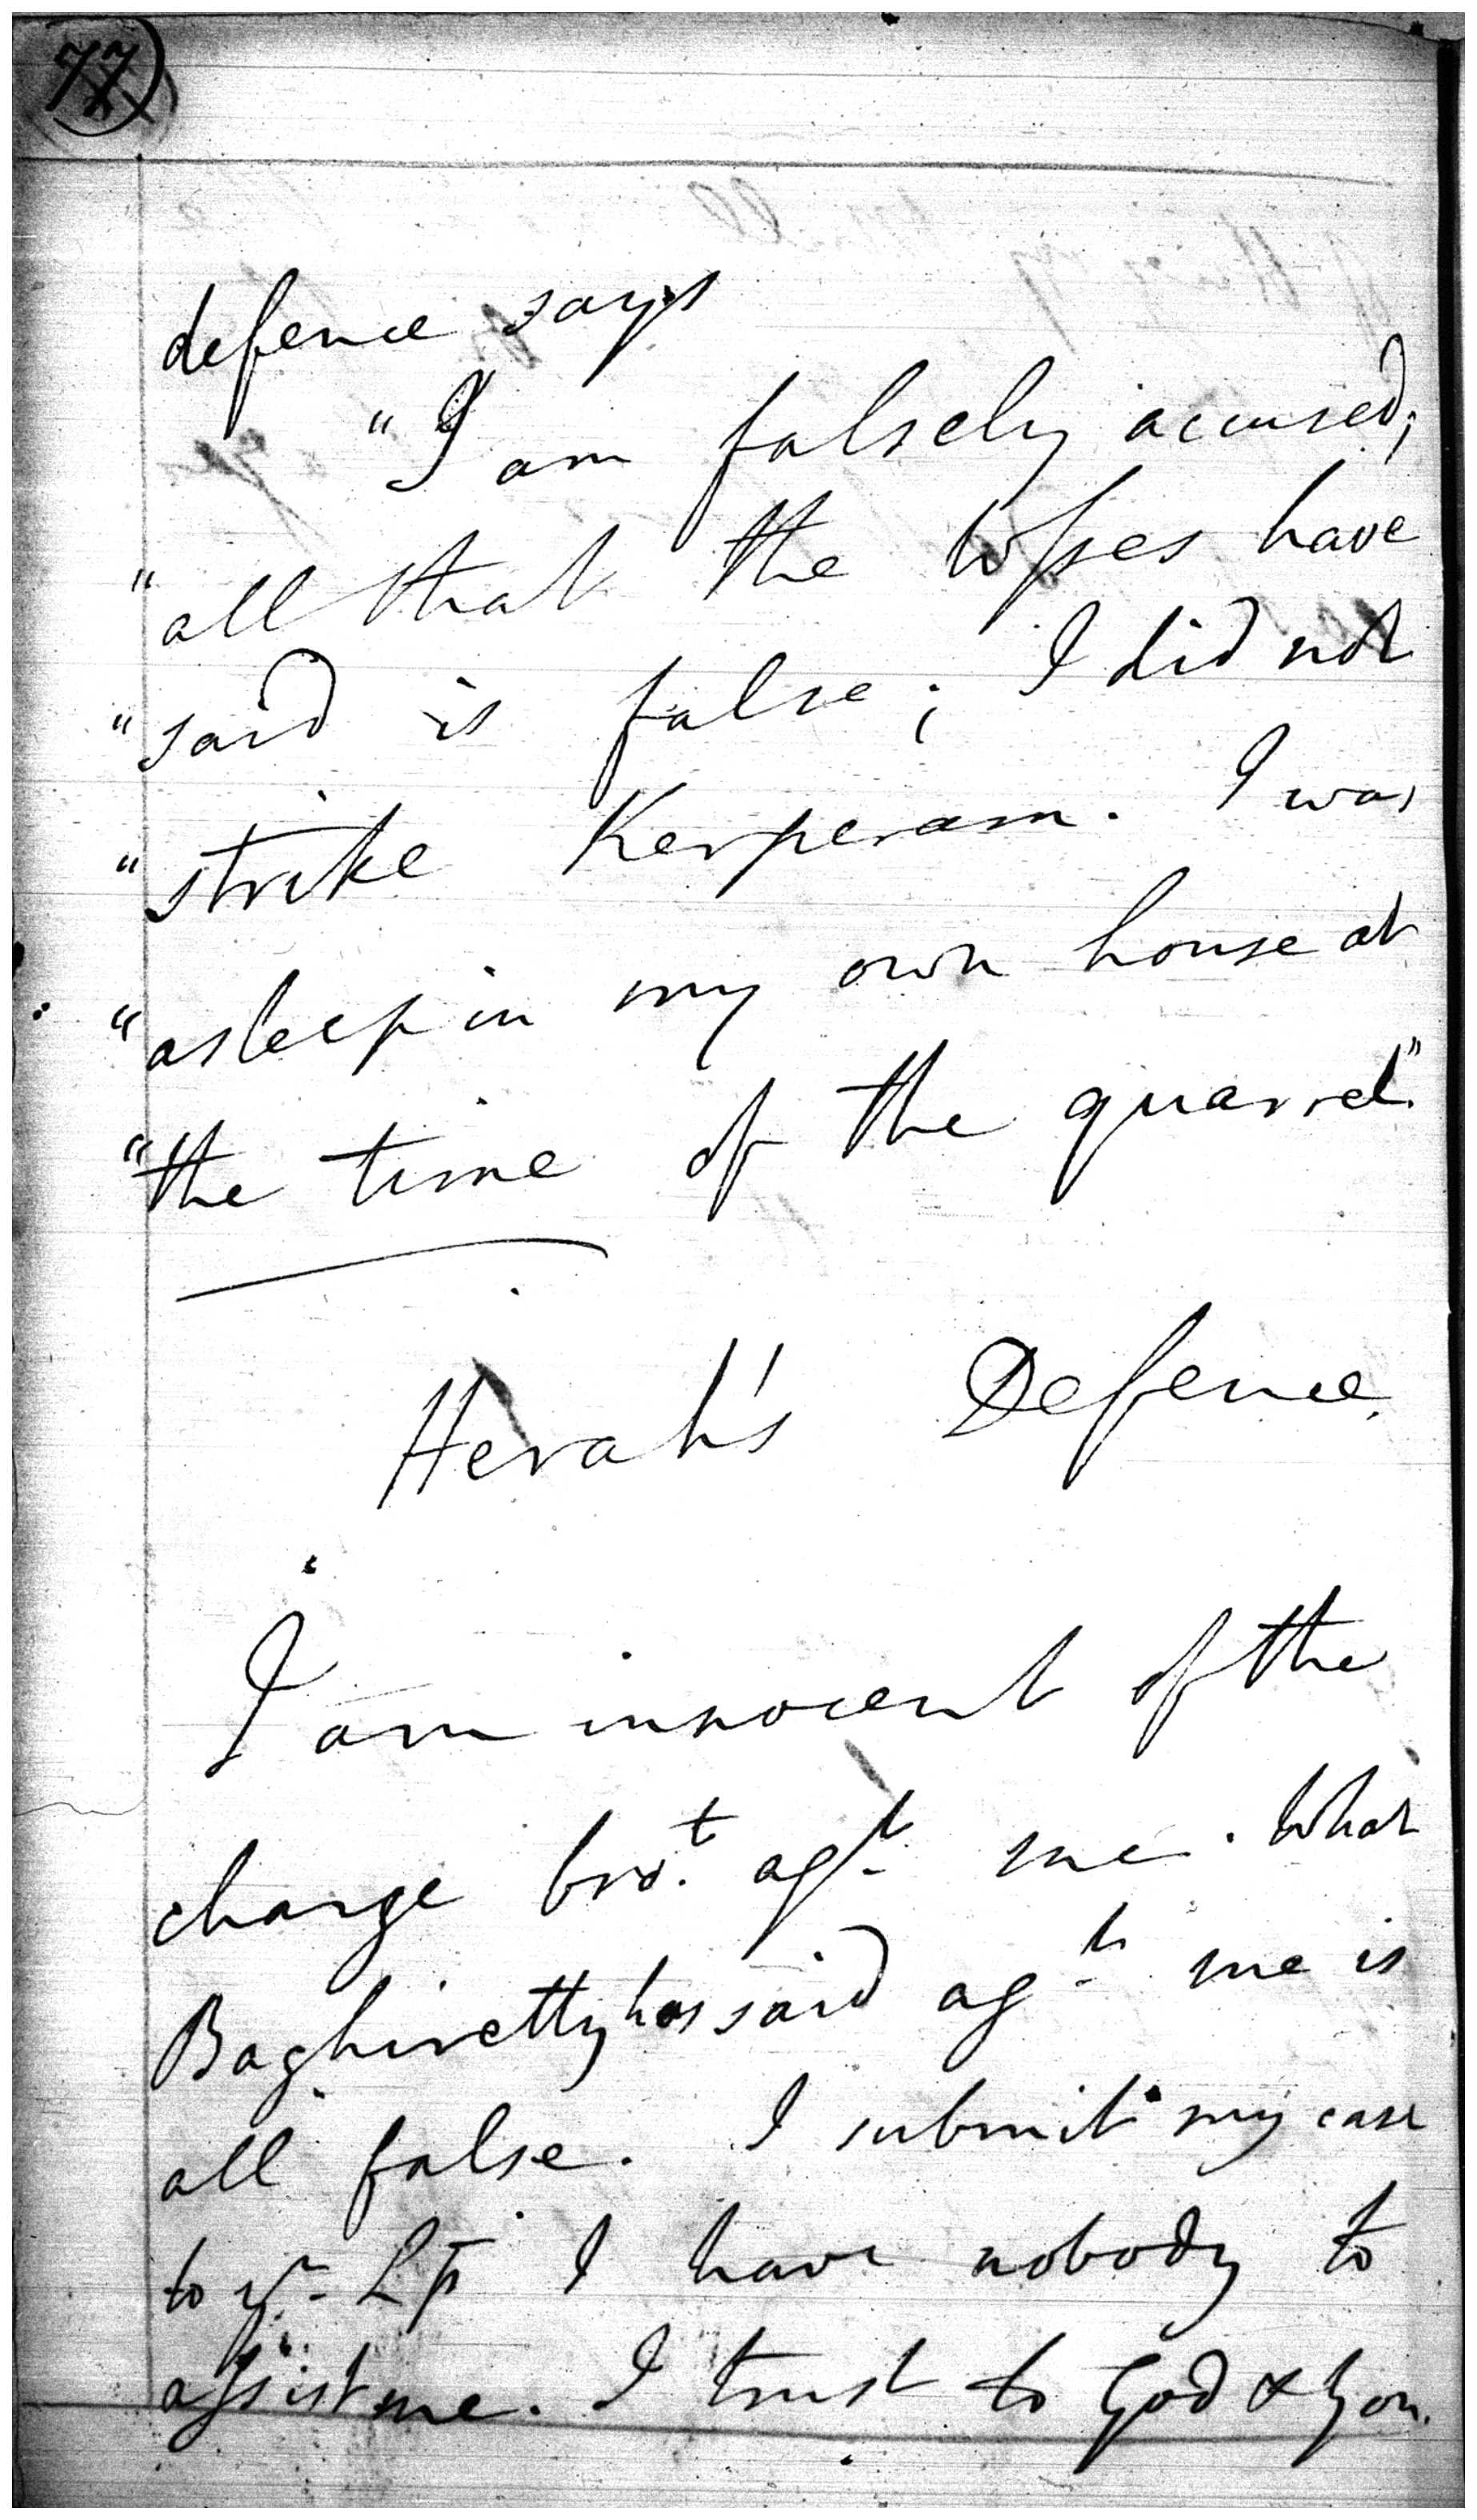 77
defence says
"I am falsely accused;
"all that the Wsses have
"said is false; I did not
"strike Kerperam. I was
"asleep in my own house at
"the time of the quarrel."
Herah's Defence.
I am innocent of the
charge brot. agt. me. What
Baghiretty has said agt. me is
all false. I submit my case
to yr. Lp I have nobody to
assist me. I trust to God & you.